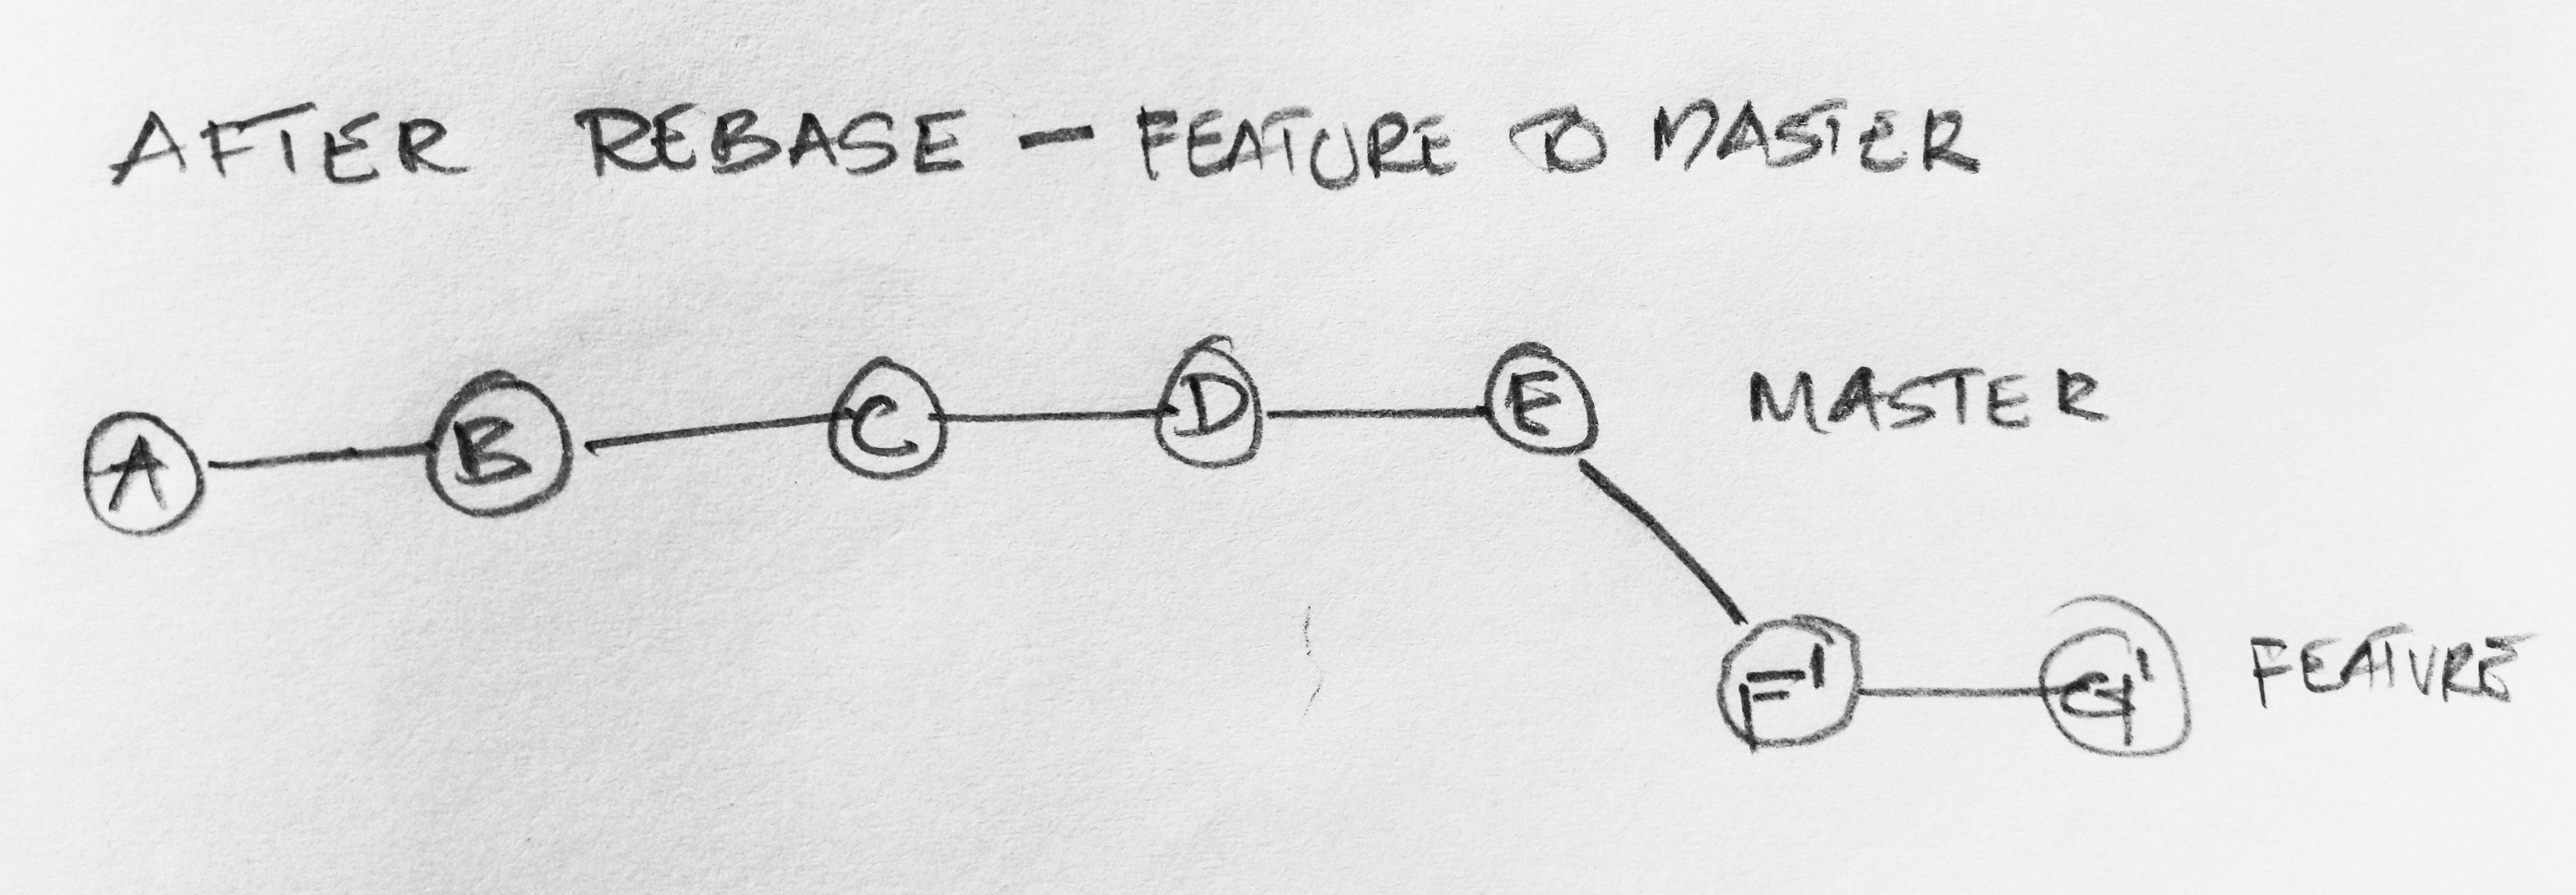 AFTER REBASE - FEATURE TO MASTER
A B C D E MASTER
F' G' FEATURE